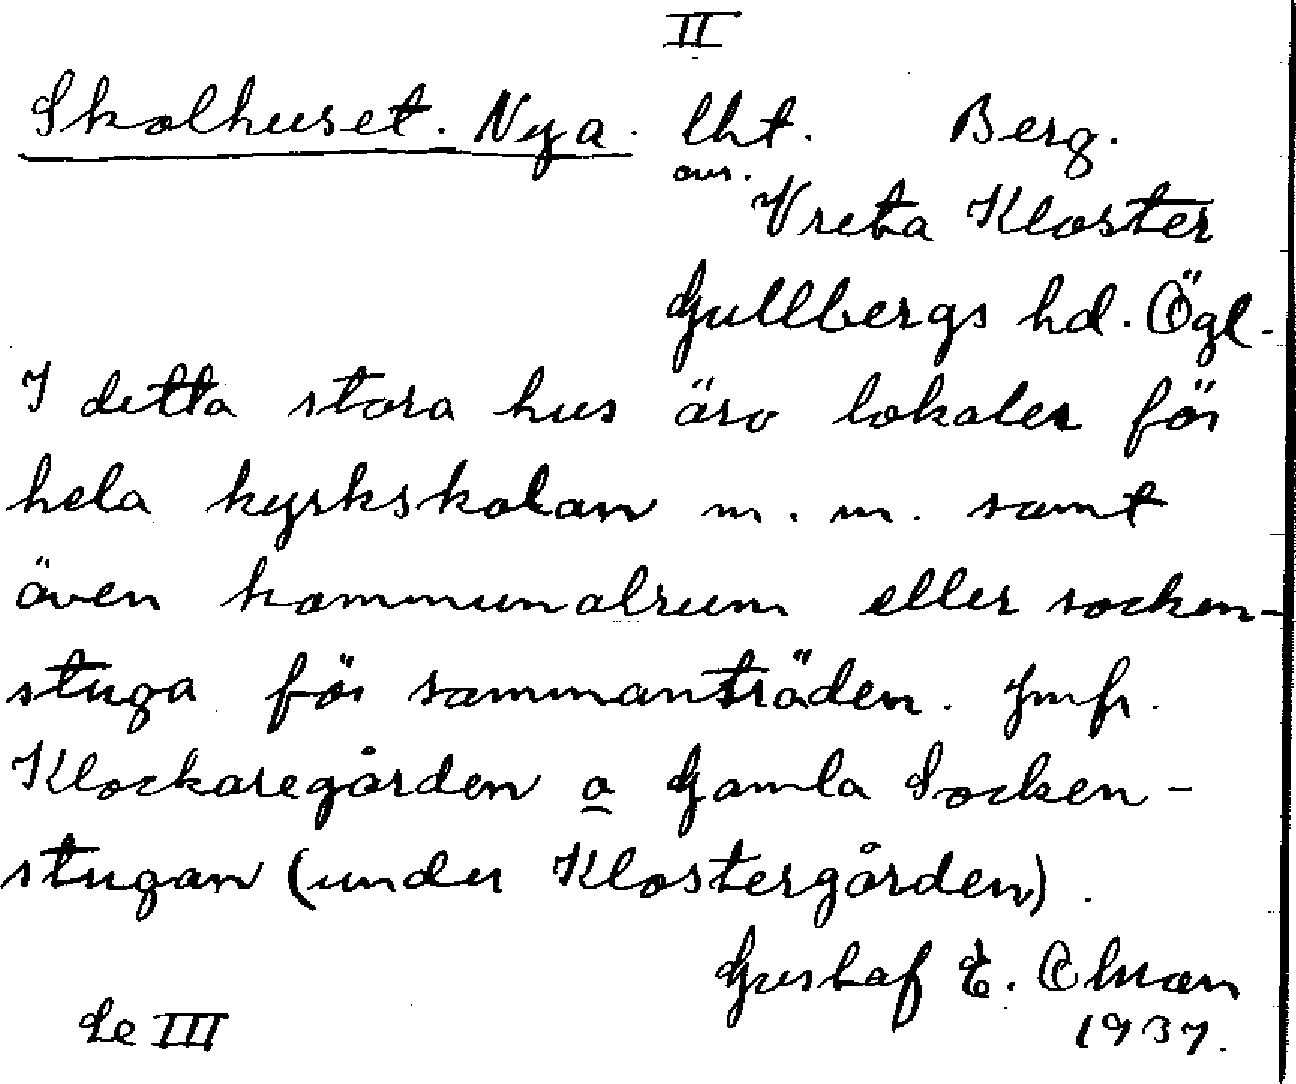 II
Skolhuset. Nya. lht. Berg.
avs.
Vreta Kloster
Gullbergs hd. Ögl.
I detta stora hus äro lokaler för
hela kyrkskolan m. m. samt
även kommunalrum eller socken-
stuga för sammanträden. Jmfr.
Klockaregården o Gamla Socken-
stugan (under Klostergården).
Gustaf E. Olman
1937.
Se III